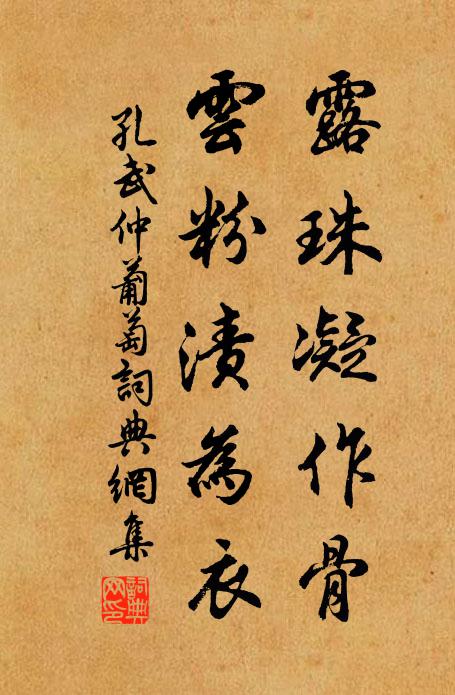 露珠凝作骨
雲粉漬為衣
孔武仲葡萄詞典網集
詞典網印